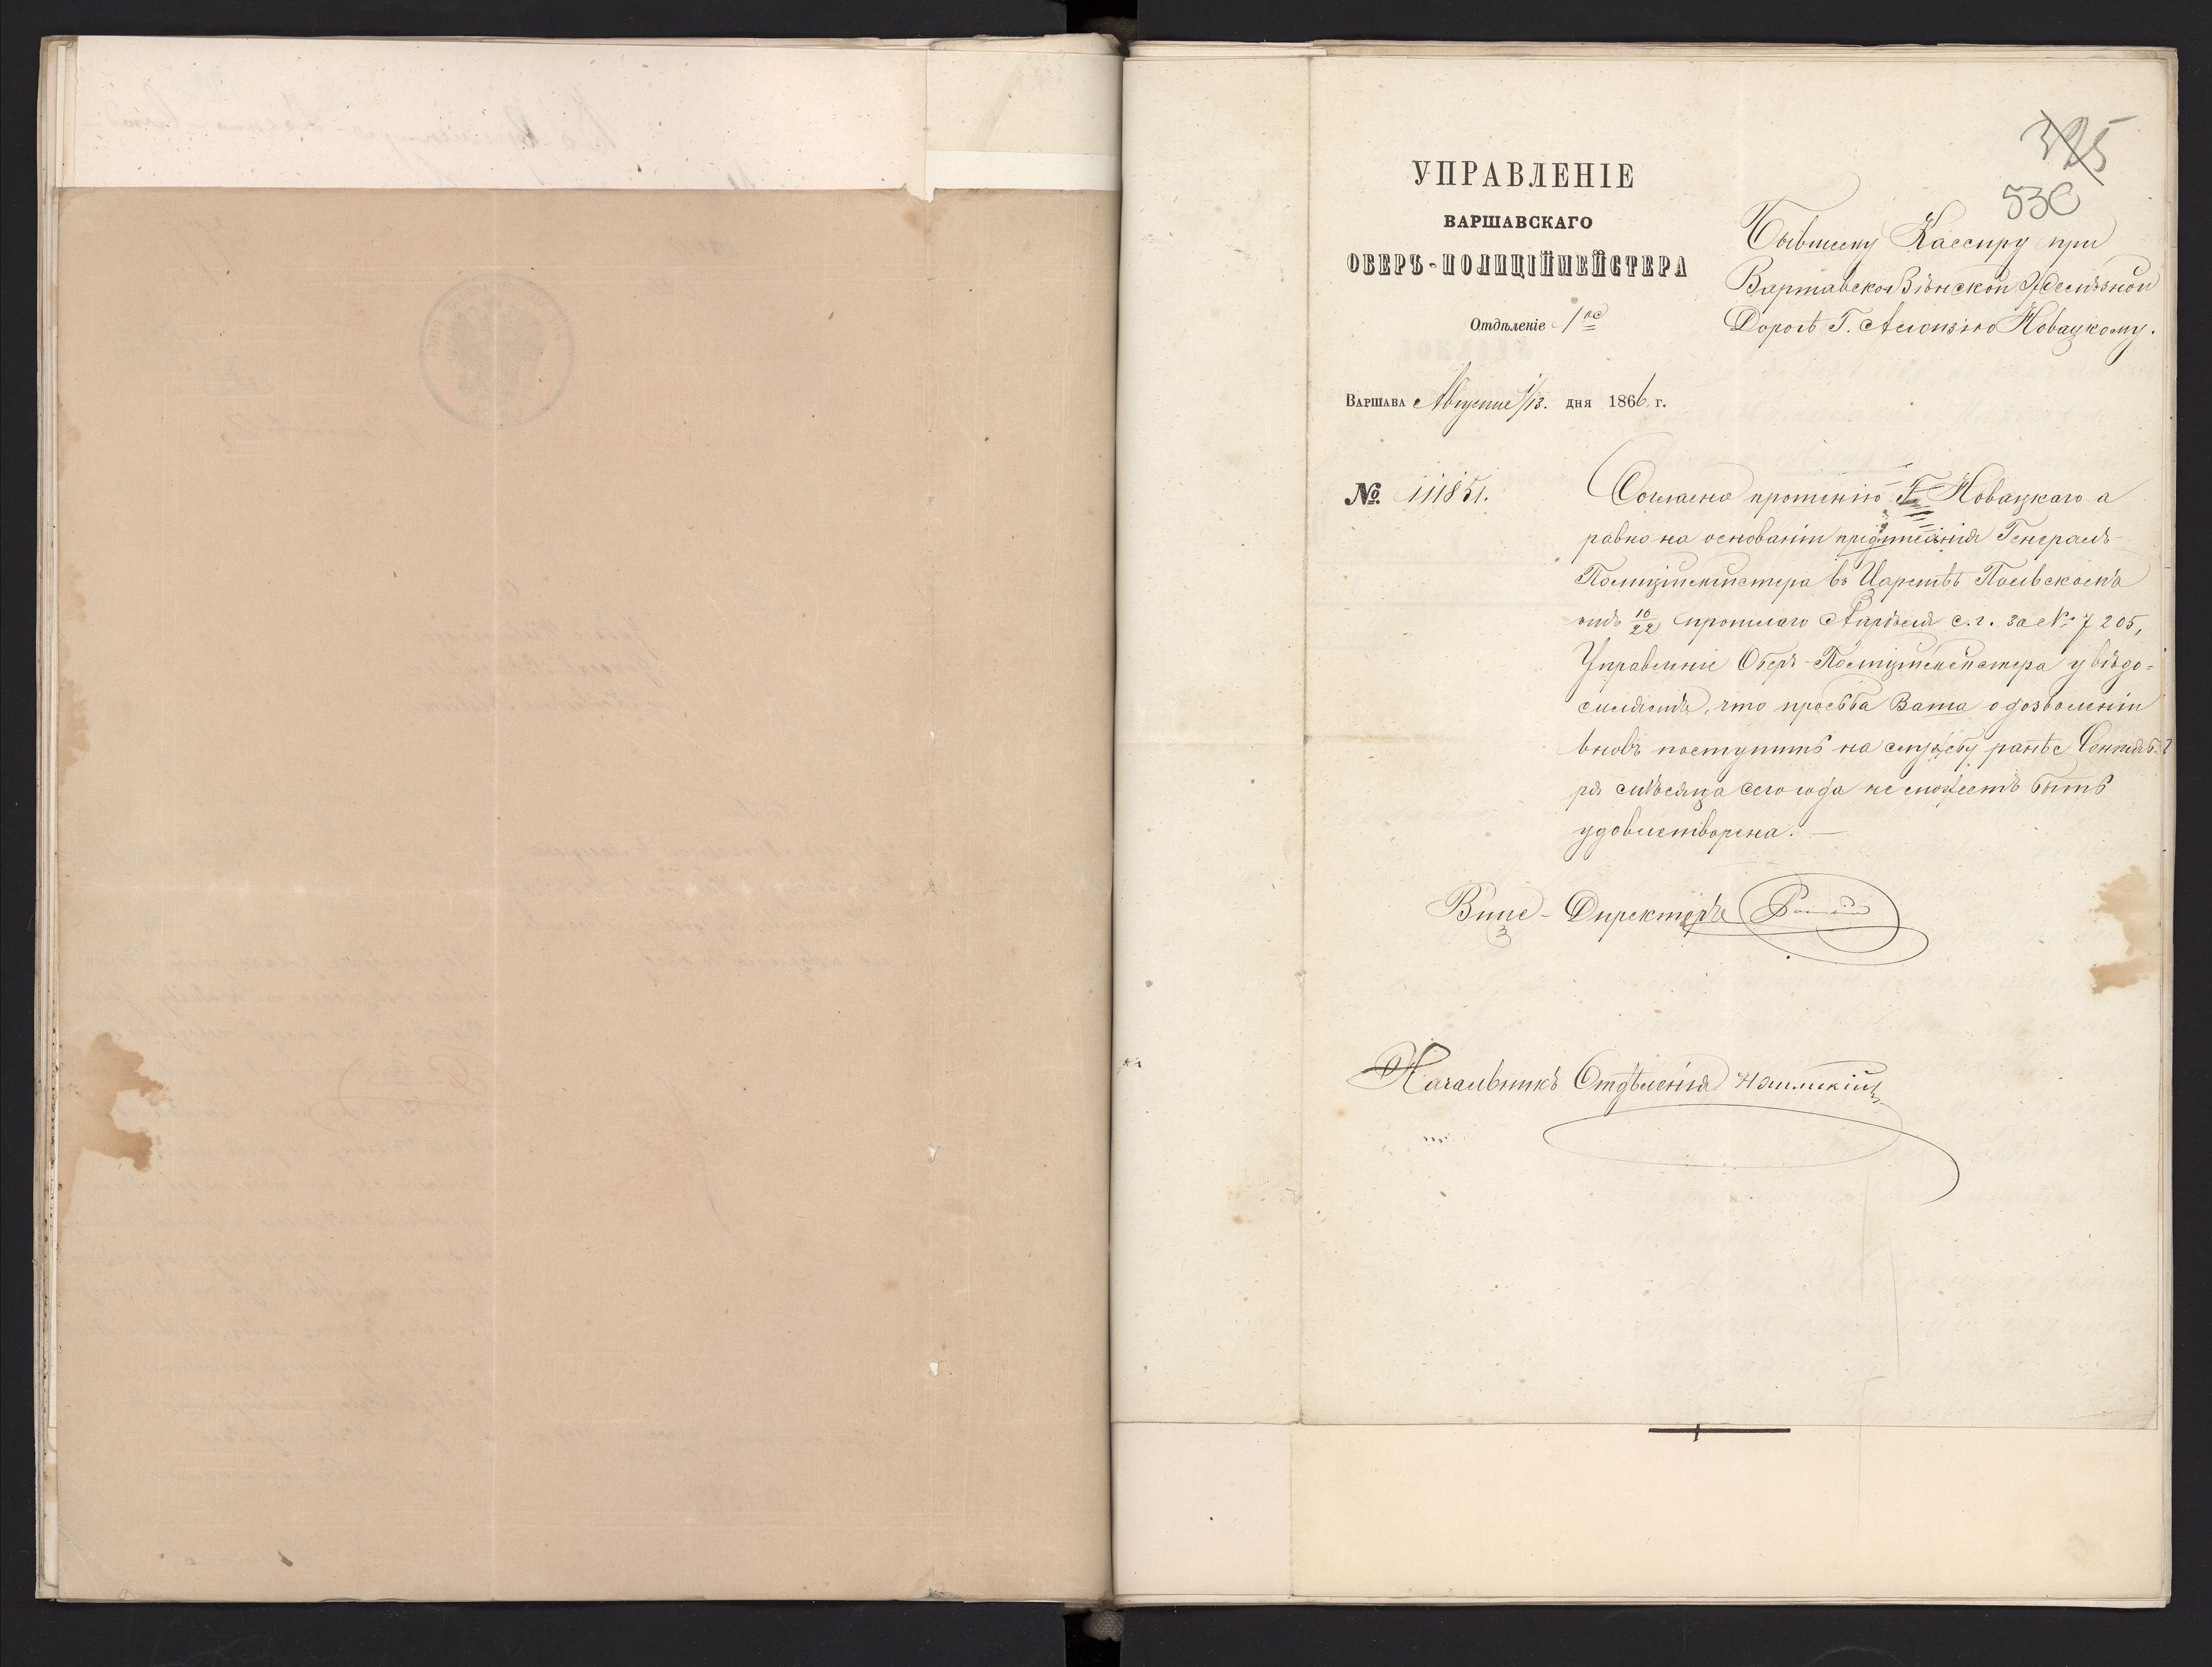 325
530
УПРАВЛЕНІЕ
ВАРШАВСКАГО
ОБЕРЪ-ПОЛИЦІЙМЕЙСТЕРА
Отдѣленіе 1ое
Варшава Августа 1/13. дня 1866. г.
№ 11851.
Бывшему Кассиру при
Варшавско Вѣнской Желѣзной
Дорогѣ Г. Алоизію Новацкому.
Согласно прошенію Г. Новацкаго а
равно на основаніи предписанія Генералъ-
Полиціймейстера въ Царствѣ Польскомъ
отъ 10/22 прошлаго Апрѣля с. г. за № 7205,
Управленіе Оберъ-Полиціймейстера увѣдо=
мляетъ, что просьба Ваша о дозволеніи
вновь поступить на службу ранѣе Сентяб-
ря мѣсяца сего года не можетъ быть
удовлетворена. —
Вице-Директоръ
Начальникъ Отдѣленія